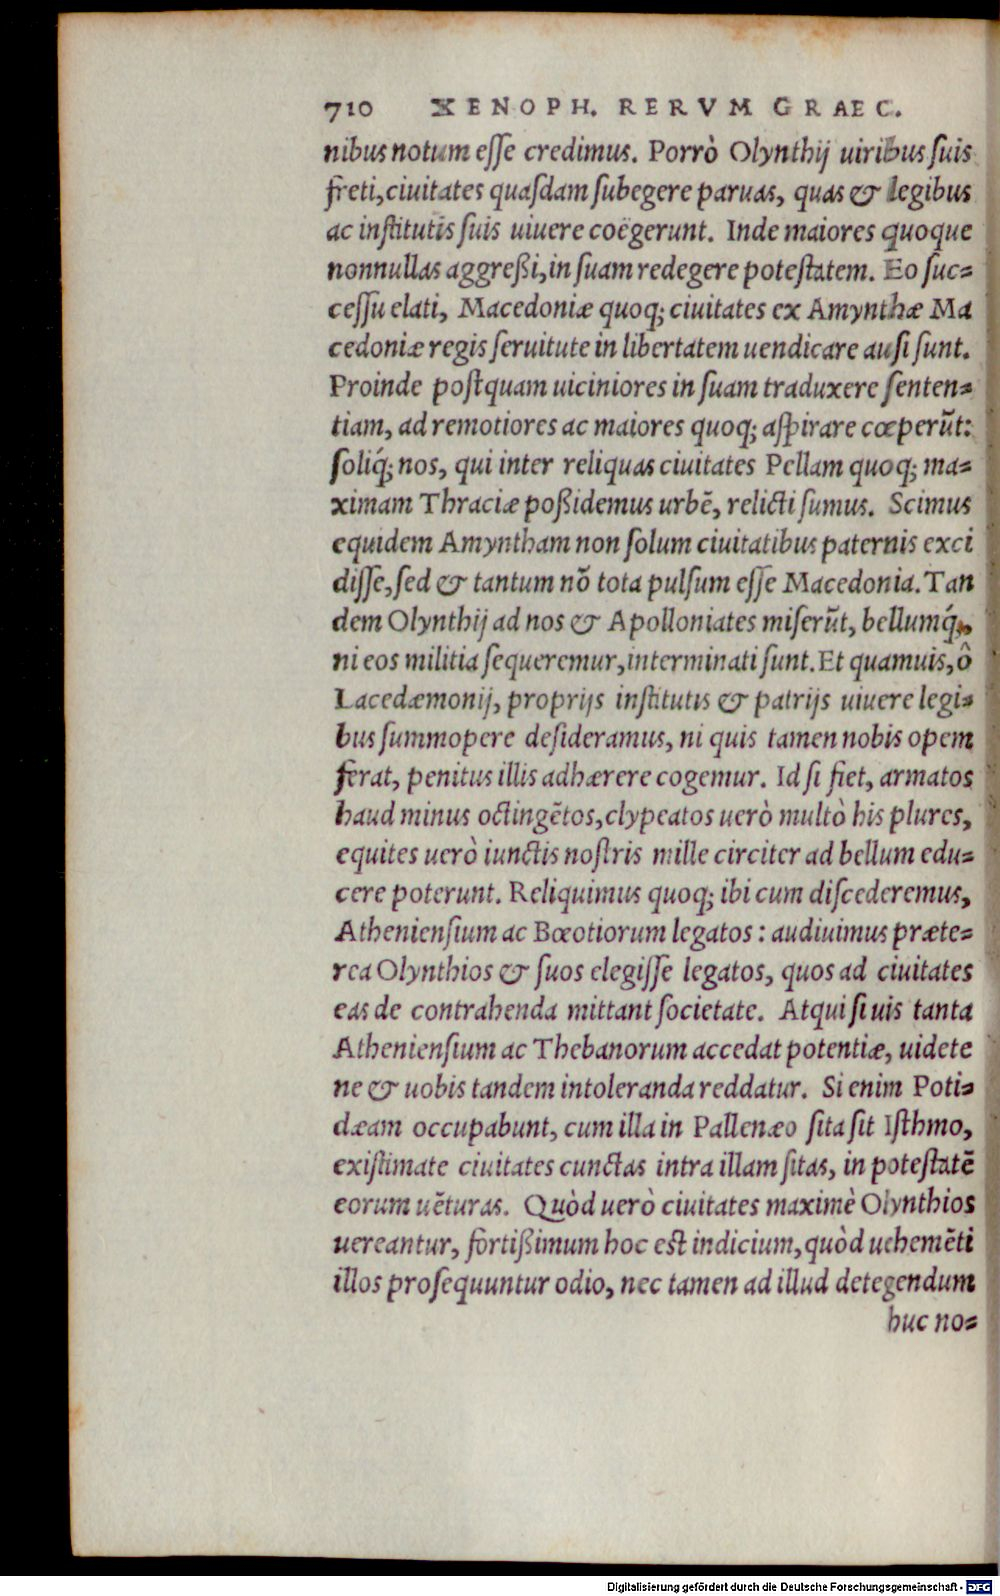 710 XENOPH. RERVM GRAEC.
nibus notum esse credimus. Porrò Olynthij uiribus suis
freti, ciuitates quasdam subegere paruas, quas & legibus
ac institutis suis uiuere coëgerunt. Inde maiores quoque
nonnullas aggreßi, in suam redegere potestatem. Eo suc=
cessu elati, Macedoniæ quoq; ciuitates ex Amynthæ Ma
cedoniæ regis seruitute in libertatem uendicare ausi sunt.
Proinde postquam uiciniores in suam traduxere senten=
tiam, ad remotiores ac maiores quoq; aspirare cœperũt:
soliq́; nos, qui inter reliquas ciuitates Pellam quoq; ma=
ximam Thraciæ poßidemus urbẽ, relicti sumus. Scimus
equidem Amyntham non solum ciuitatibus paternis exci
disse, sed & tantum nõ tota pulsum esse Macedonia. Tan
dem Olynthij ad nos & Apolloniates miserũt, bellumq́;,
ni eos militia sequeremur, interminati sunt. Et quamuis, ô
Lacedæmonij, proprijs institutis & patrijs uiuere legi=
bus summopere desideramus, ni quis tamen nobis opem
ferat, penitus illis adhærere cogemur. Id si fiet, armatos
haud minus octingẽtos, clypeatos uerò multò his plures,
equites uerò iunctis nostris mille circiter ad bellum edu=
cere poterunt. Reliquimus quoq; ibi cum discederemus,
Atheniensium ac Bœotiorum legatos: audiuimus præte=
rea Olynthios & suos elegisse legatos, quos ad ciuitates
eas de contrahenda mittant societate. Atqui si uis tanta
Atheniensium ac Thebanorum accedat potentiæ, uidete
ne & uobis tandem intoleranda reddatur. Si enim Poti=
dæam occupabunt, cum illa in Pallenæo sita sit Isthmo,
existimate ciuitates cunctas intra illam sitas, in potestatẽ
eorum uẽturas. Quòd uerò ciuitates maximè Olynthios
uereantur, fortißimum hoc est indicium, quòd uehemẽti
illos prosequuntur odio, nec tamen ad illud detegendum
huc no=
Digitalisierung gefördert durch die Deutsche Forschungsgemeinschaft - DFG